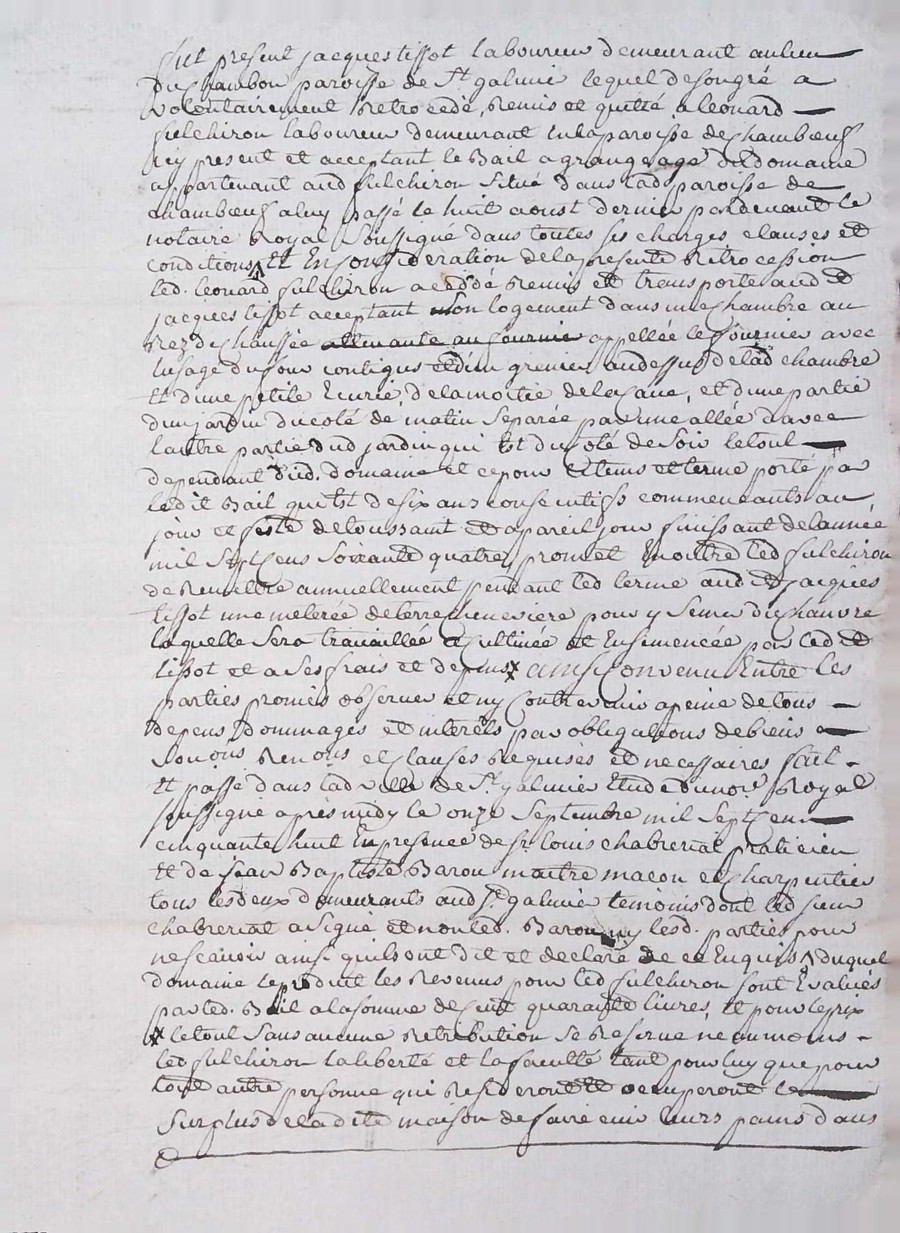 fut present jacques tissot laboureur demeurant au lieu
du chambon paroisse de St. galmier lequel de son gré a
volontairement retrocedé, remis et quitté a leonard
fulchiron laboureur demeurant en la paroisse de chambœuf
icy present et acceptant le bail a grangeage du domaine
appartenant aud fulchiron situé dans lad paroisse de
chambœuf a luy passé le huit aoust dernier pardevant le
notaire Royal soussigné dans toutes ses charges clauses et
conditions et en consideration de la presente retrocession
led. leonard fulchiron a cedé remis et transporte aud
jacques tissot acceptant son logement dans une chambre au
rez de chaussée attenante au fournier appellée le fournier avec
lusage du four contigus et d'un grenier au dessus de lad chambre
et d'une petite Ecurie, de la moitié de la cave, et d'une partie
d'un jardin du coté de matin separée par une allée d'avec
l'autre partie dud jardin qui est du coté de soir le tout
dependant dud. domaine et ce pour le tems et terme porté par
ledit bail qui est de six ans consecutifs commencants au
jour et feste de toussaint et a pareil jour finissant de lannée
mil sept cens soixante quatre, promet en outre led fulchiron
de remettre annuellement pendant led terme aud jacques
tissot une meterée de terre cheneviere pour y semer du chanvre
laquelle sera travaillée cultivée et ensemencée par led
tissot et a ses frais et depens ainsi convenu Entre les
parties promis observer et ny contrevenir a peine de tous
depens dommages et interets par obligations de biens
soumons renons et clauses requises et necessaires fait
et passé dans lad ville de St. galmier etude du nore. Royal
soussigné apres midy le onze septembre mil sept cens
cinquante huit en presence de sr. louis chabrerat praticien
et de jean Baptiste Baron maitre macon et charpentier
tous les deux demeurants aud St. galmier temoins dont led sieur
chabrerat a signé et non led. Baron ny lesd. parties pour
ne scavoir ainsi quils ont dit et declaré de ce enquis, duquel
domaine le produit les revenus pour led fulchiron sont Evalués
par led. Bail a la somme de cent quarante livres, et pour le prix
le tout sans aucune retribution se reserve neanmoins
led fulchiron la liberté et la faculté tant pour luy que pour
tout autre personne qui resideront et occuperont le
surplus de la dite maison de faire cuir leurs pains dans